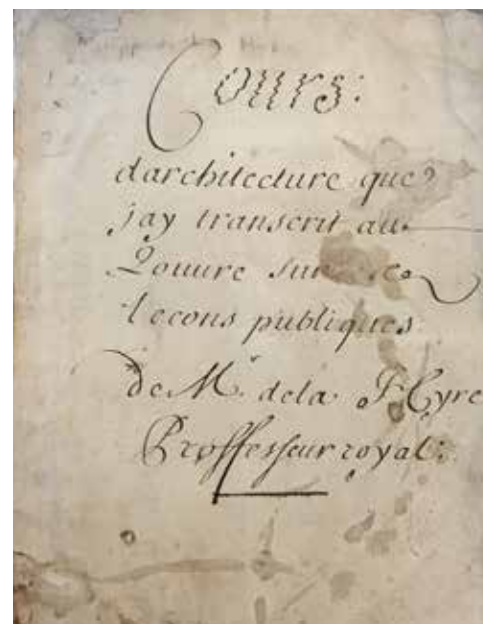 Cours:
darchitecture que
jay transcrit au
Louure sur
lecons publiques
de Mr. dela Hyre
Proffesseur royal: